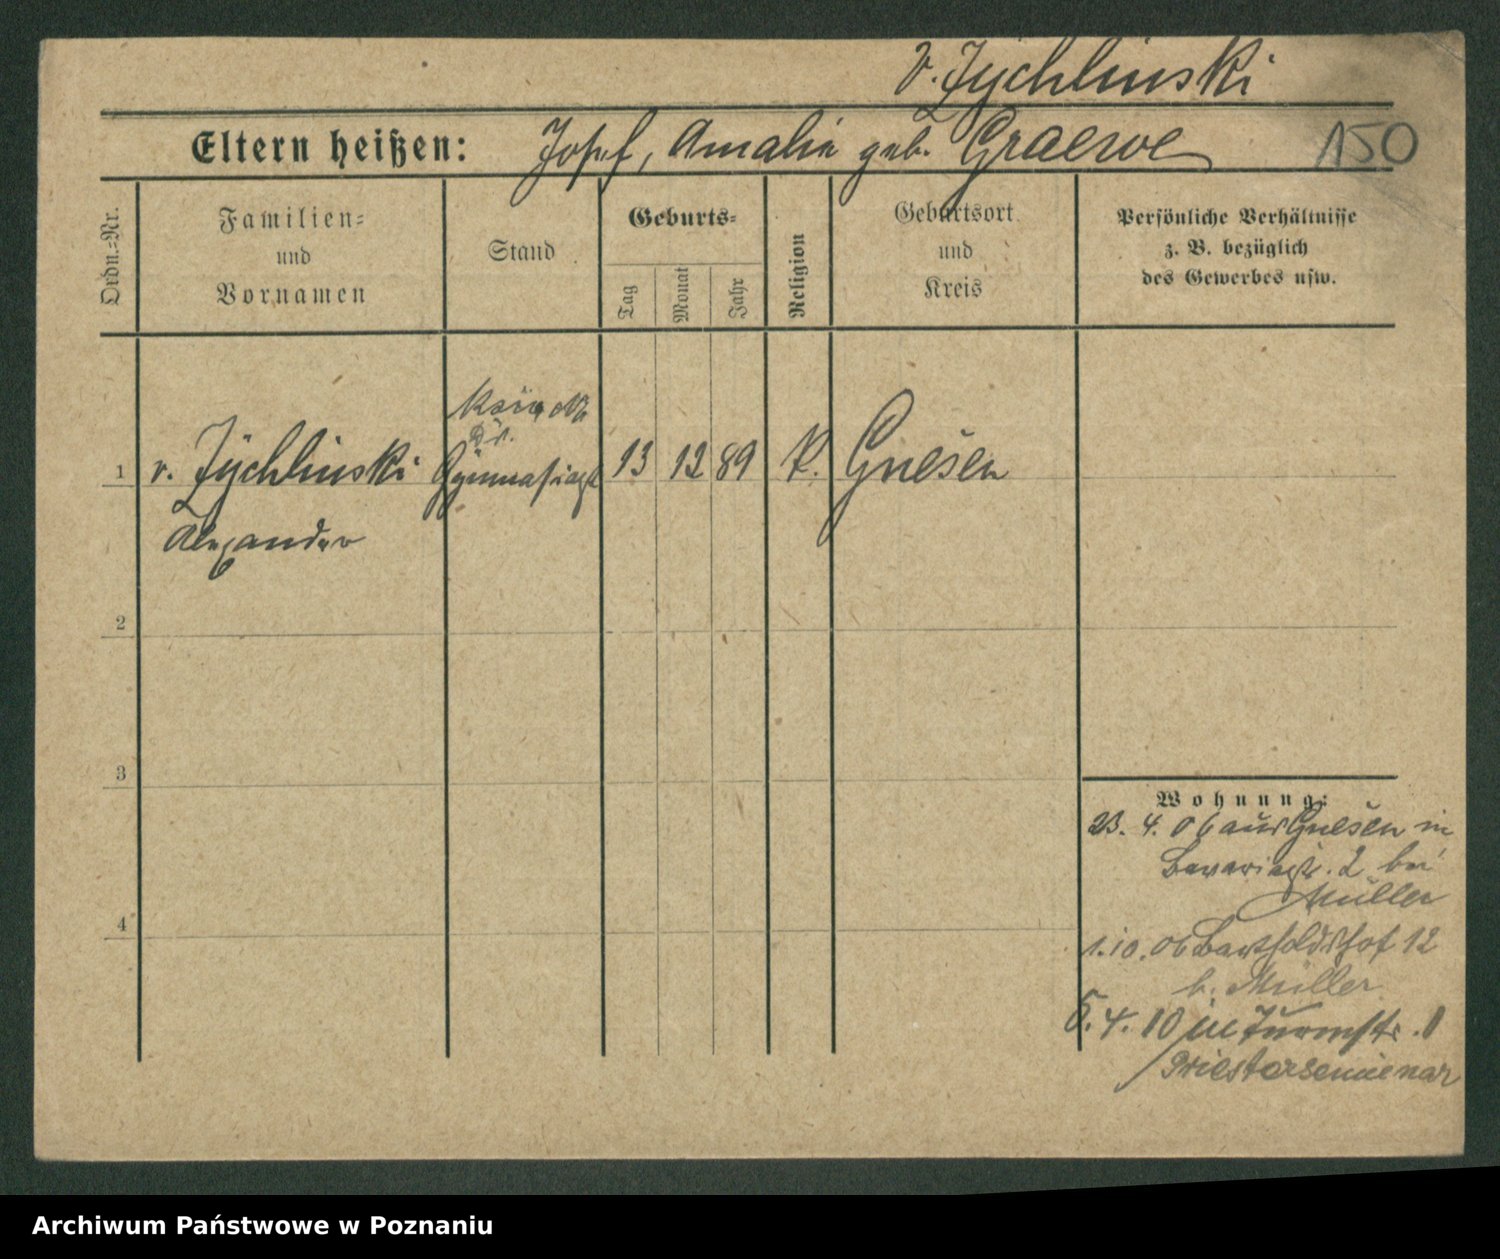 v. Zychlinski
Eltern heißen: Josef, Amalie geb. Graewe 150
Ordn.=Nr.
Familien=
und
Vornamen
Stand
Geburts=
Tag
Monat
Jahr
Religion
Geburtsort
und
Kreis
Persönliche Verhältnisse
z. B. bezüglich
des Gewerbes usw.
Dr.
1 v. Zychlinski Gymnasiast 13 12 89 k. Gnesen
Alexander
2
3
4
Wohnung:
23. 4. 06 aus Gnesen in
Bavariastr. 2 bei
Müller
1.10.06 Bartholdshof 12
b. Müller
5. 4. 10 in Turmstr. 1
Priesterseminar
Archiwum Państwowe w Poznaniu